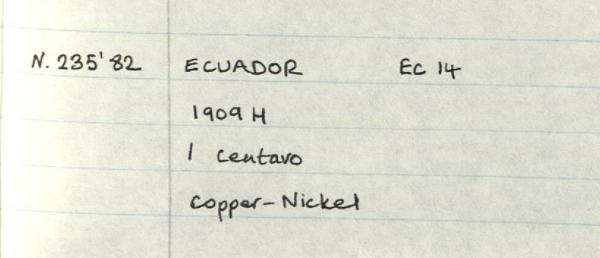 N. 235'82 ECUADOR Ec 14
1909 H
1 Centavo
Copper-Nickel